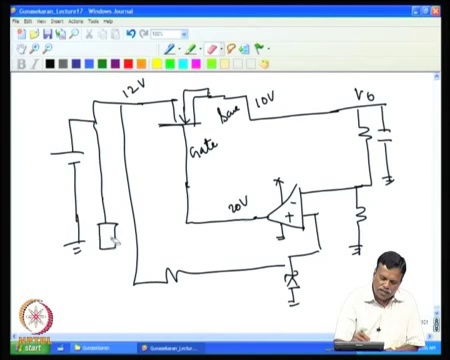 Gunasekaran_Lecture17 - Windows Journal
File Edit View Insert Actions Tools Help
12V
10V
V0
Gate
20V
-
+
start
Gunasekaran
Gunasekaran_Lectur...